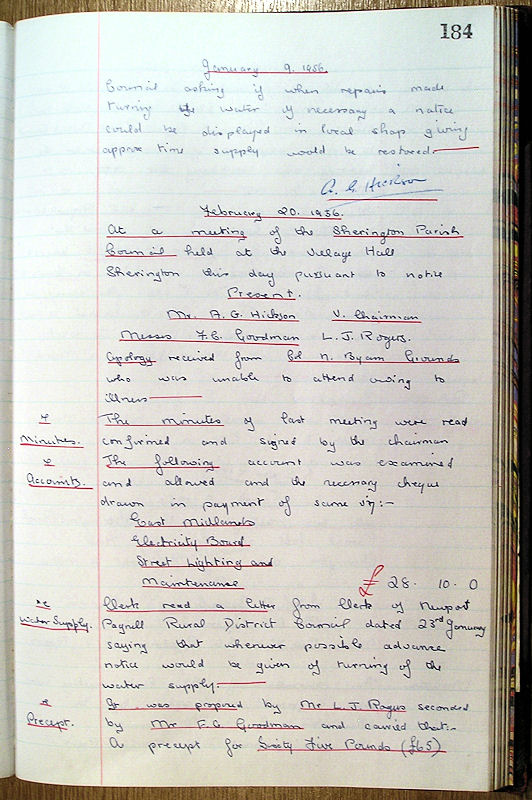 184
January 9. 1956
Council asking if when repairs made
turning water if necessary a notice
could be displayed in local shop giving
approx time supply would be restored.
A. G. Hickson
February 20. 1956.
At a meeting of the Sherington Parish
Council held at the Village Hall
Sherington this day pursuant to notice
Present.
Mr. A. G. Hickson V. Chairman
Messes F. C. Goodman L. J. Rogers.
Apology received from Col N. Byam Grounds
who was unable to attend owing to
illness
The minutes of last meeting were read
Minutes. confirmed and signed by the chairman
The following account was examined
Accounts. and allowed and the necessary cheque
drawn in payment of same viz:-
East Midlands
Electricity Board
Street Lighting and
Maintenance £ 28. 10. 0
Clerk read a letter from Clerk of Newport
Water Supply. Pagnell Rural District Council dated 23rd January
saying that wherever possible advance
notice would be given of turning of the
water supply.
It was proposed by Mr L. J. Rogers seconded
Precept. by Mr F. C. Goodman and carried that:-
A precept for Sixty Five Pounds (£65)